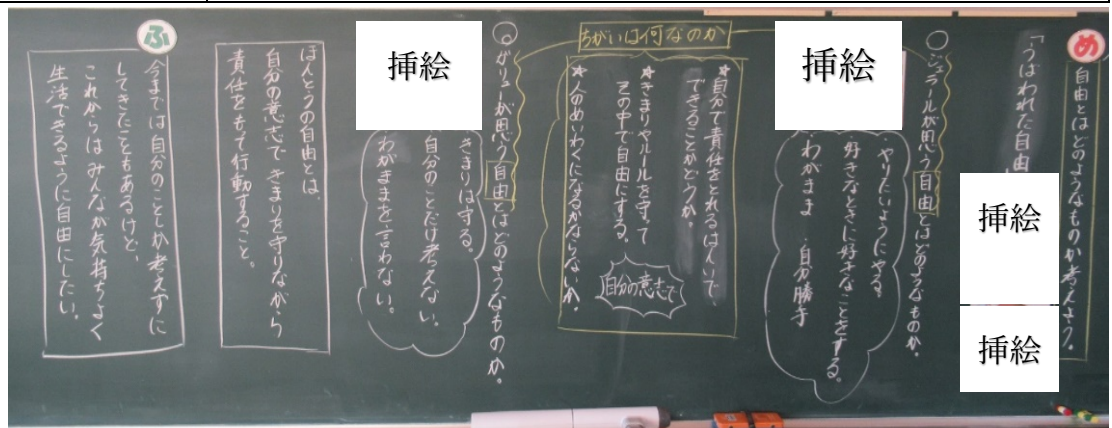 め
自由とはどのようなものか考えよう。
「うばわれた自由
挿絵
挿絵
○ジェラールが思う自由とはどのようなものか。
挿絵
・やりたいようにやる。
・好きなときに好きなことをする。
・わがまま ・自分勝手
ちがいは何なのか
★自分で責任をとれるはんいで
できることかどうか。
★きまりやルールを守って
その中で自由にする。
自分の意志で
★人のめいわくになるかならないか。
○ガリューが思う自由とはどのようなものか。
挿絵
きまりは守る。
自分のことだけ考えない。
わがままを言わない。
ほんとうの自由とは、
自分の意志できまりを守りながら
責任をもって行動すること。
ふ
今までは自分のことしか考えずに
してきたこともあるけど、
これからはみんなが気持ちよく
生活できるように自由にしたい。